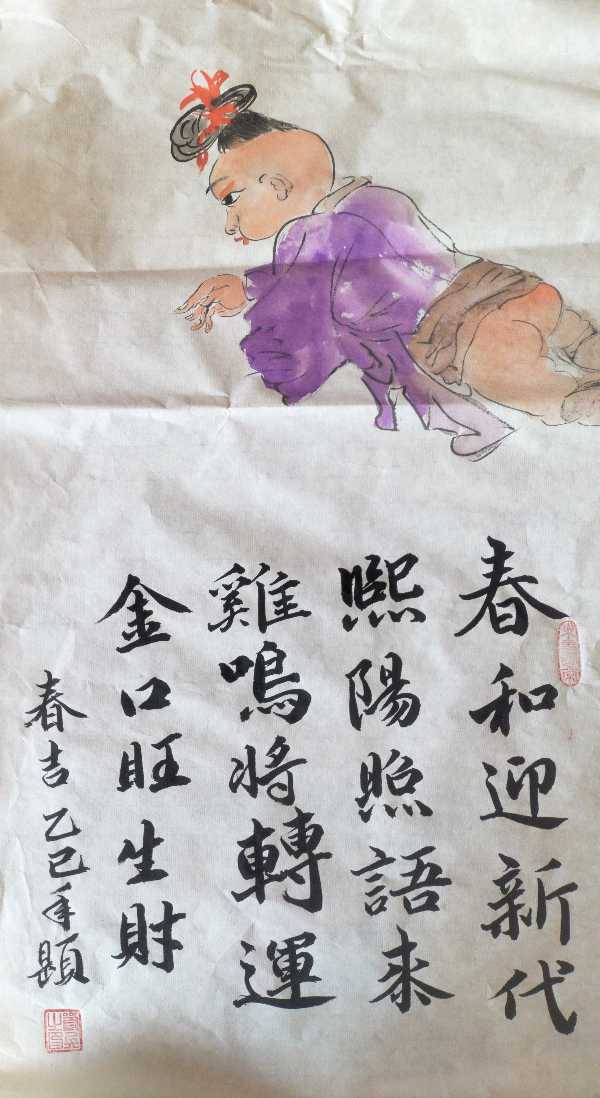 春和迎新代
熙陽照語来
雞鳴將轉運
金口旺生財
春吉乙巳年題